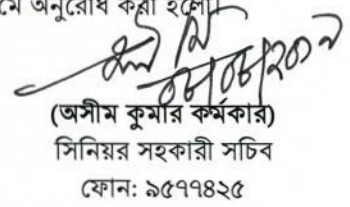 অনুরোধ করা হলো।
(অসীম কুমার কর্মকার)
সিনিয়র সহকারী সচিব
ফোন: ৯৫৭৭৪২৫